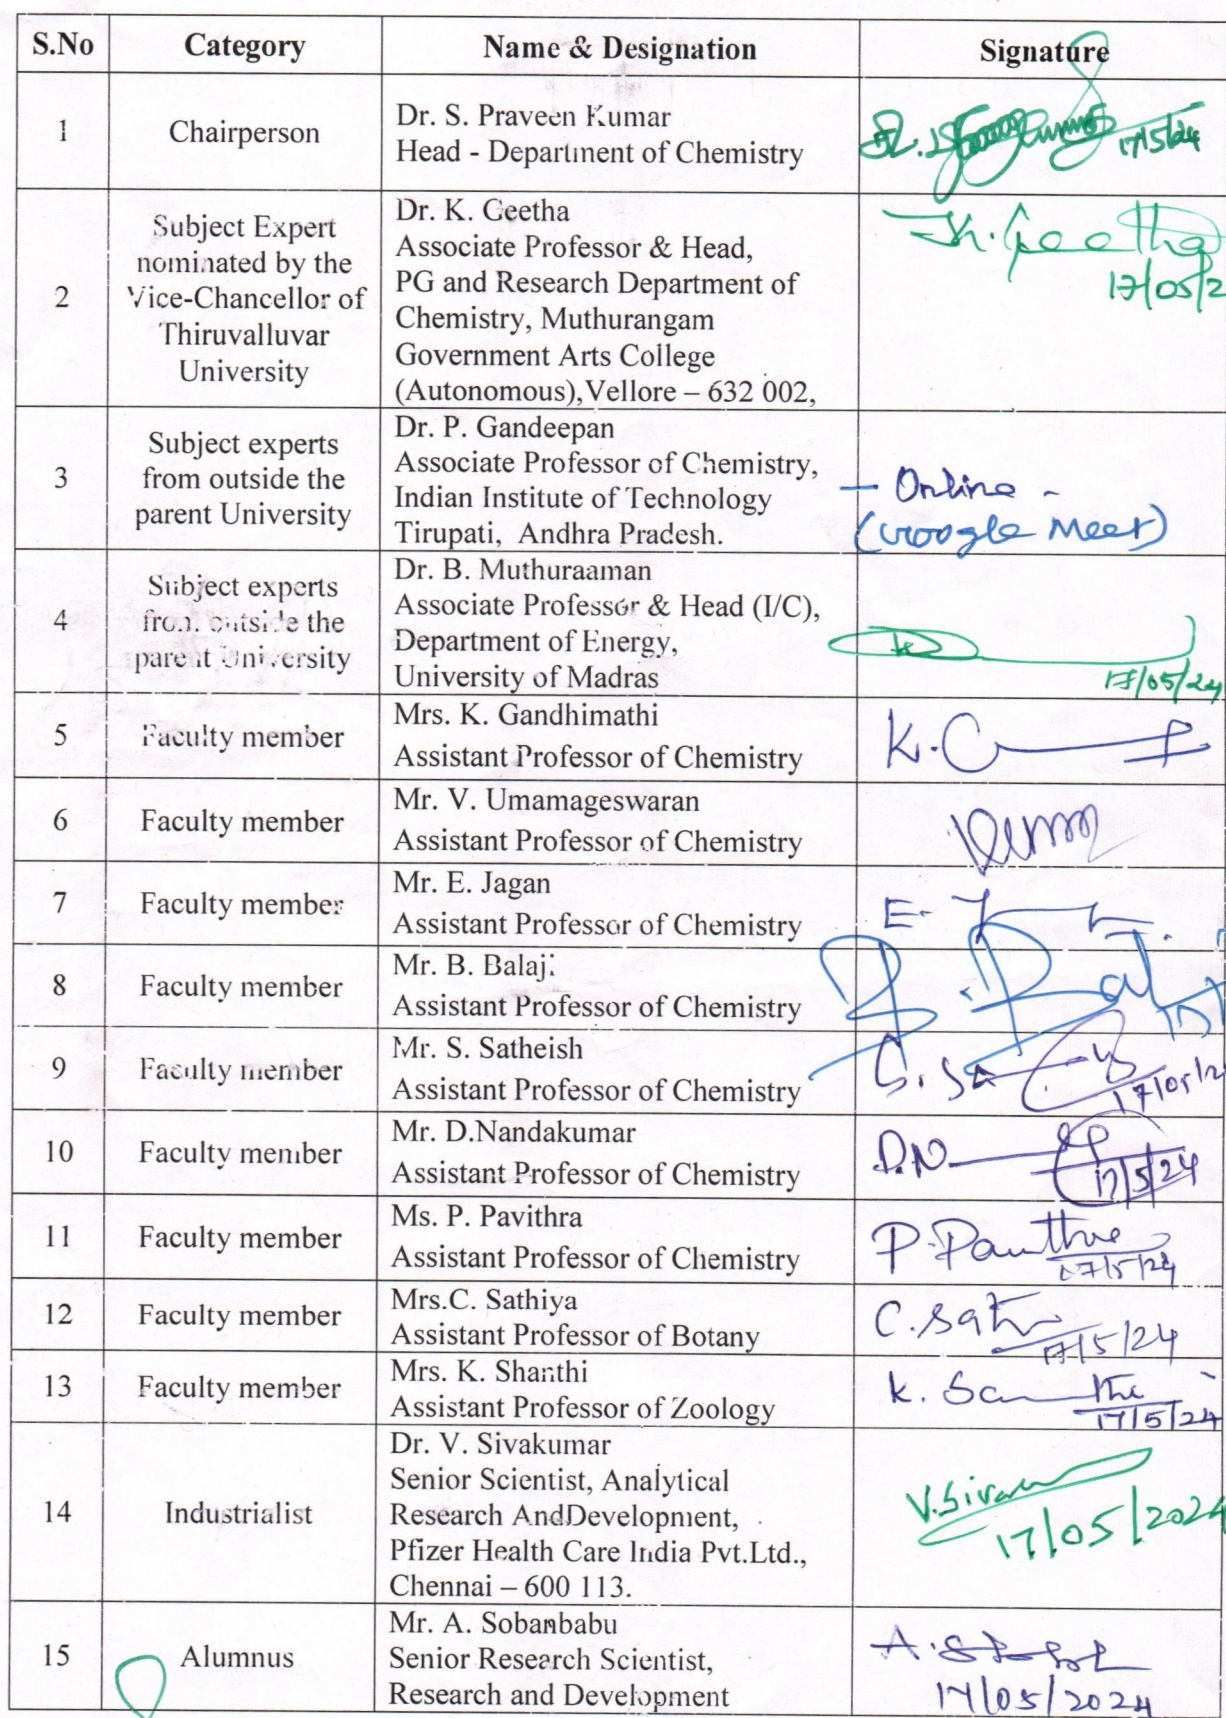 S.No Category Name & Designation Signature
1 Chairperson Dr. S. Praveen Kumar
Head - Department of Chemistry
17/5/24
2 Subject Expert
nominated by the
Vice-Chancellor of
Thiruvalluvar
University
Dr. K. Geetha
Associate Professor & Head,
PG and Research Department of
Chemistry, Muthurangam
Government Arts College
(Autonomous),Vellore – 632 002,
K. Geetha
17/05/2
3 Subject experts
from outside the
parent University
Dr. P. Gandeepan
Associate Professor of Chemistry,
Indian Institute of Technology
Tirupati, Andhra Pradesh.
– Online -
(Google Meet)
4 Subject experts
from outside the
parent University
Dr. B. Muthuraaman
Associate Professor & Head (I/C),
Department of Energy,
University of Madras
17/05/24
5 Faculty member
Mrs. K. Gandhimathi
Assistant Professor of Chemistry
6 Faculty member
Mr. V. Umamageswaran
Assistant Professor of Chemistry
7 Faculty member
Mr. E. Jagan
Assistant Professor of Chemistry
8 Faculty member
Mr. B. Balaji
Assistant Professor of Chemistry
9 Faculty member
Mr. S. Satheish
Assistant Professor of Chemistry
17/05/2
10 Faculty member
Mr. D.Nandakumar
Assistant Professor of Chemistry
D.N
17/5/24
11 Faculty member
Ms. P. Pavithra
Assistant Professor of Chemistry
17/5/24
12 Faculty member
Mrs.C. Sathiya
Assistant Professor of Botany
17/5/24
13 Faculty member
Mrs. K. Shanthi
Assistant Professor of Zoology
17/5/24
14 Industrialist
Dr. V. Sivakumar
Senior Scientist, Analytical
Research AndDevelopment,
Pfizer Health Care India Pvt.Ltd.,
Chennai – 600 113.
17/05/2024
15 Alumnus
Mr. A. Sobanbabu
Senior Research Scientist,
Research and Development
17/05/2024